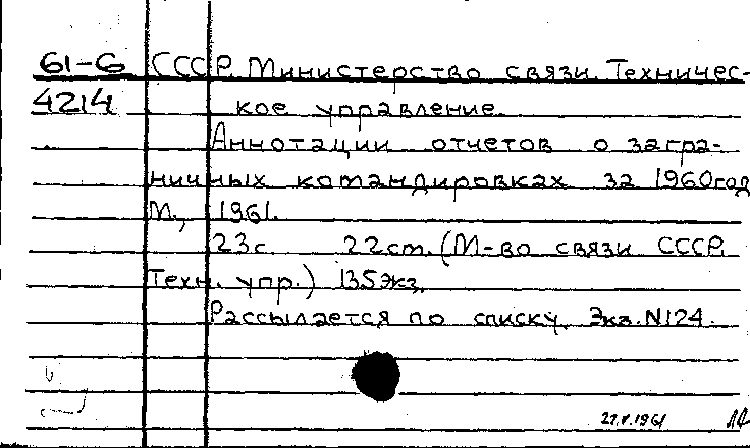 61-6 СССР. Министерство связи. Техничес-
4214 кое управление.
Аннотации отчетов о загра-
ничных командировках за 1960год
М., 1961.
23с 22см. (М-во связи СССР.
Техн. упр.) 135экз.
Рассылается по списку. Экз. N124.
27.V.1961